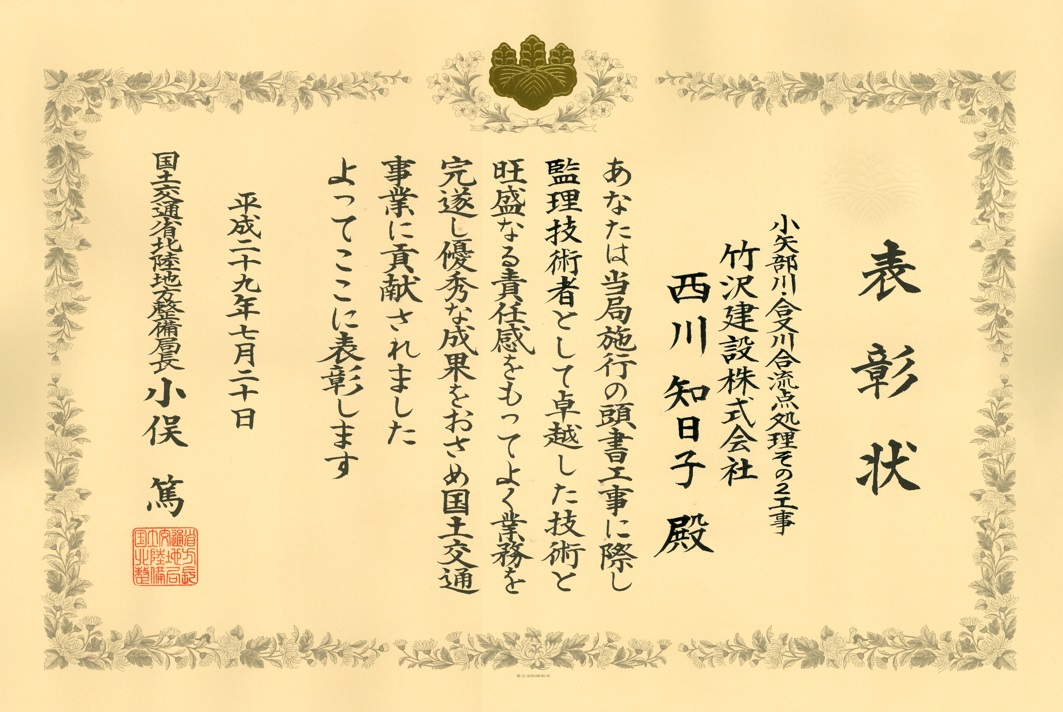 表彰状
小矢部川・合又川合流点処理その2工事
竹沢建設株式会社
西川 知日子 殿
あなたは当局施行の頭書工事に際し
監理技術者として卓越した技術と
旺盛なる責任感をもってよく業務を
完遂し優秀な成果をおさめ国土交通
事業に貢献されました
よってここに表彰します
平成二十九年七月二十日
国土交通省北陸地方整備局長 小俣 篤